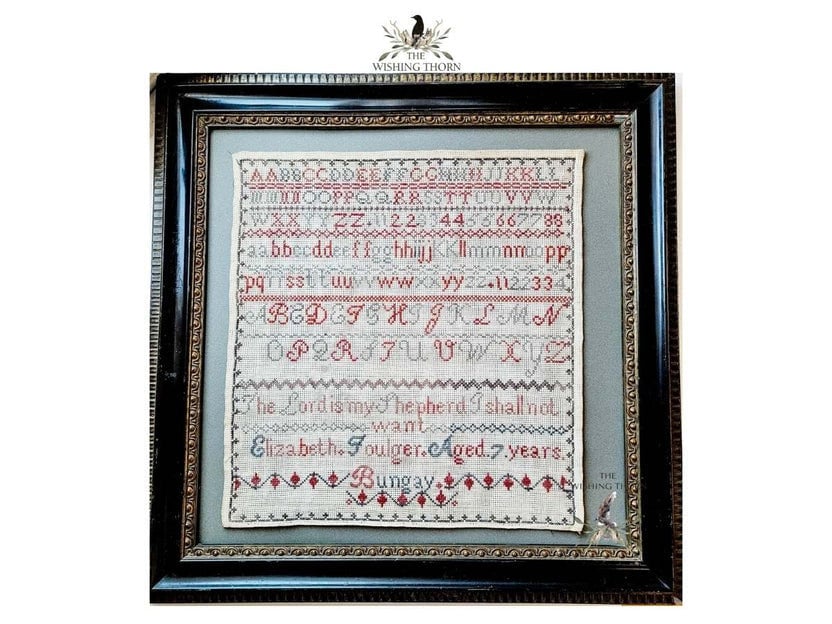 THE
WISHING THORN
AABBCCDDEEFFGGHHIIJJKKLL
MMNNOOPPQQRRSSTTUUVVW
WXXYYZZ.112233445667738
aabbccddeeffgghhiijjKKllmmnnoopp
pqrrssttuuvvwwxxyyzz.1122334
ABCDEFGHIJKLMN
OPQRSTUVWXYZ
The Lord is my Shepherd I shall not
want
Elizabeth.Foulger.Aged.7.years.
Bungay.
THE
WISHING TH